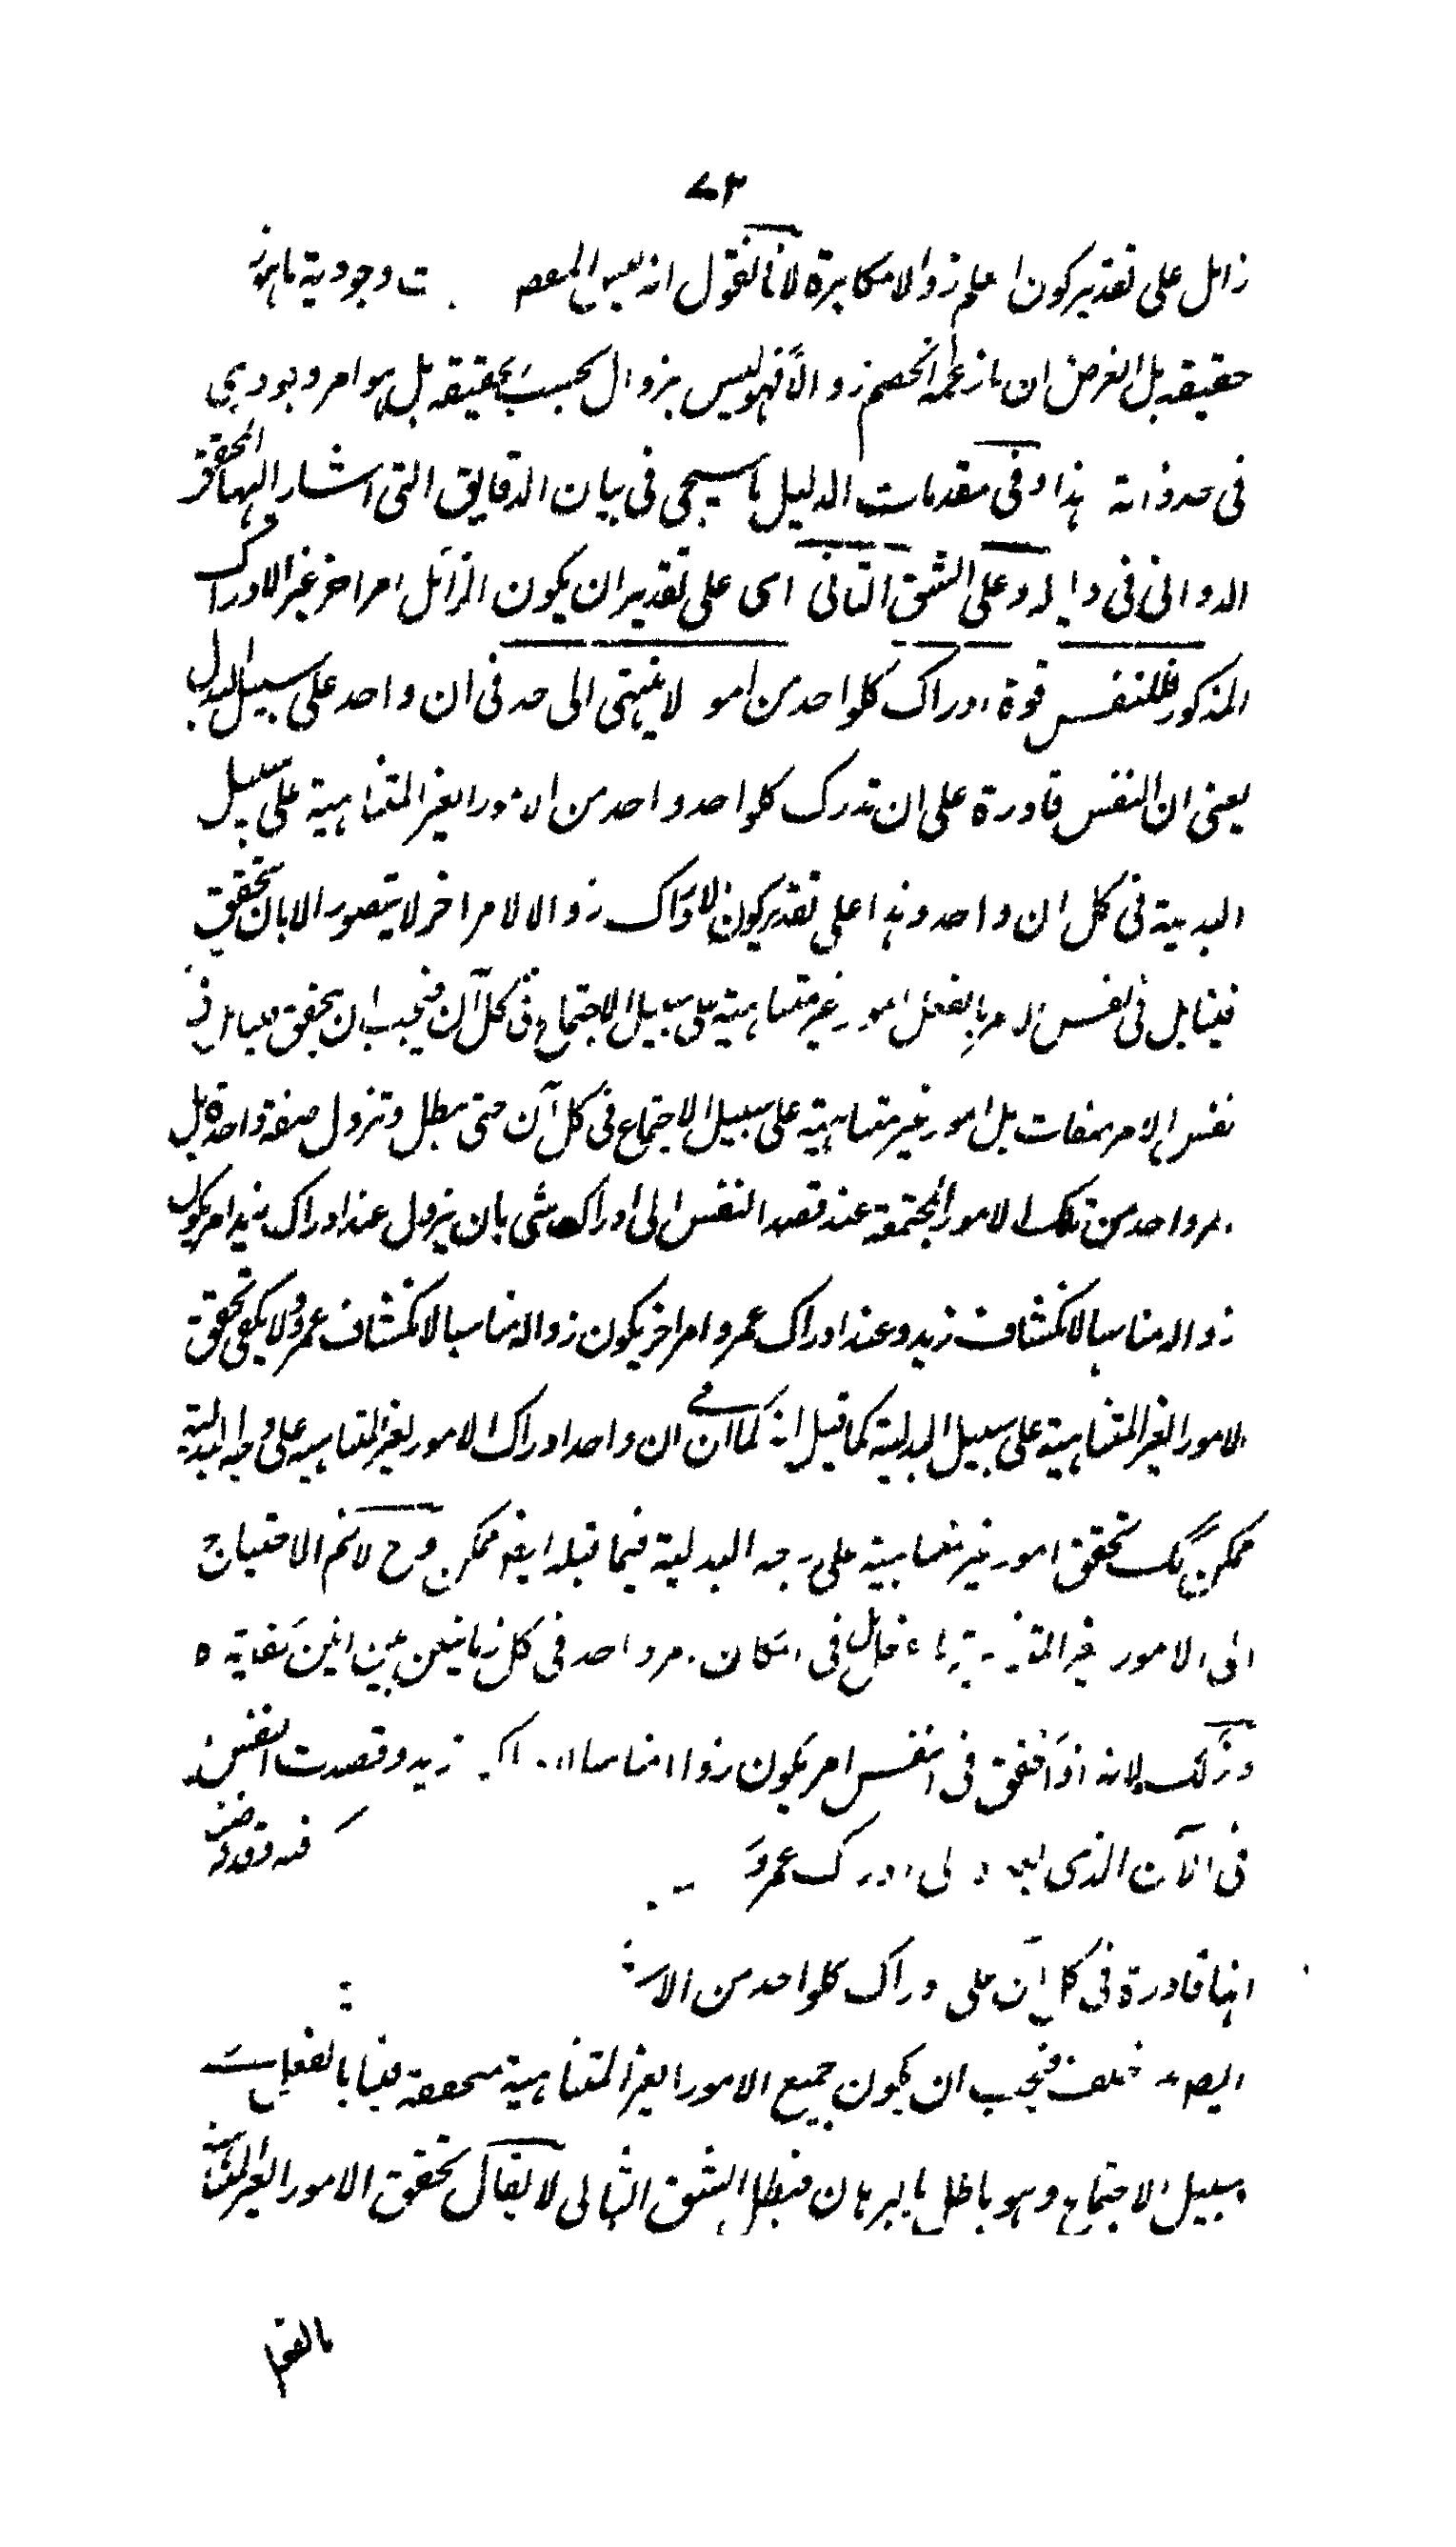 ٧٣
زائل على تقدير كون العلم زوالا مكابرة لانا نقول انه ليس المقصود ت وجودية ماهو
حقيقه بل الغرض ان ما زعمه الخصم زوالا فهو ليس بزوال بحسب الحقيقه بل هو امر وجودي
فى حد ذاته هذا وفى مقدمات الدليل ما سيجى فى بيان الدقايق التى اشار اليها المحقق
الدوانى فى وعلى الشق الثانى اى على تقدير ان يكون الزائل امرا اخر غير الادراك
المذكور فللنفس قوة ادراك كلواحد من امور لا ينتهى الى حد فى ان واحد على سبيل البدل
يعنى ان النفس قادرة على ان تدرك كلواحد واحد من الامور الغير المتناهية على سبيل
البدلية فى كل ان واحد وهذا على تقدير كون الادراك زوالا لامر اخر لا يتصور الا بان تحقق
فى نفس الامر بالفعل امور غير متناهية على سبيل الاجتماع فى كل آن فيجب ان يتحقق فى
نفس الامر صفات بل امور غير متناهية على سبيل الاجتماع فى كل آن حتى يبطل وتزول صفة واحدة بل
امر واحد من تلك الامور المجتمعة عند قصد النفس الى ادراك شى بان يزول عند ادراك زيد امر يكون
زواله مناسبا لانكشاف زيد وعند ادراك عمرو امر اخر يكون زواله مناسبا لانكشاف عمرو ولا يكفى تحقق
الامور الغير المتناهية على سبيل البدلية كما قيل انه كما ان فى ان واحد ادراك الامور الغير المتناهيه على وجه البدلية
ممكن كك تحقق امور غير متناهية على وجه البدلية فيما قبله ايضا ممكن وح لا نم الاحتياج
الى الامور غير المتناهية فى امر واحد فى كل زمانين بين انين
وذلك لانه اذا تحقق فى النفس امر يكون زواله مناسبا زيد وقصدت النفس
فى الآن الذى ادراك عمرو
انها قادرة فى كل آن على ادراك كلواحد من
خلف فيجب ان يكون جميع الامور الغير المتناهية متحققه فينا بالفعل على
سبيل الاجتماع وهو باطل بالبرهان فبطل الشق الثانى لا يقال تحقق الامور الغير المتناهية